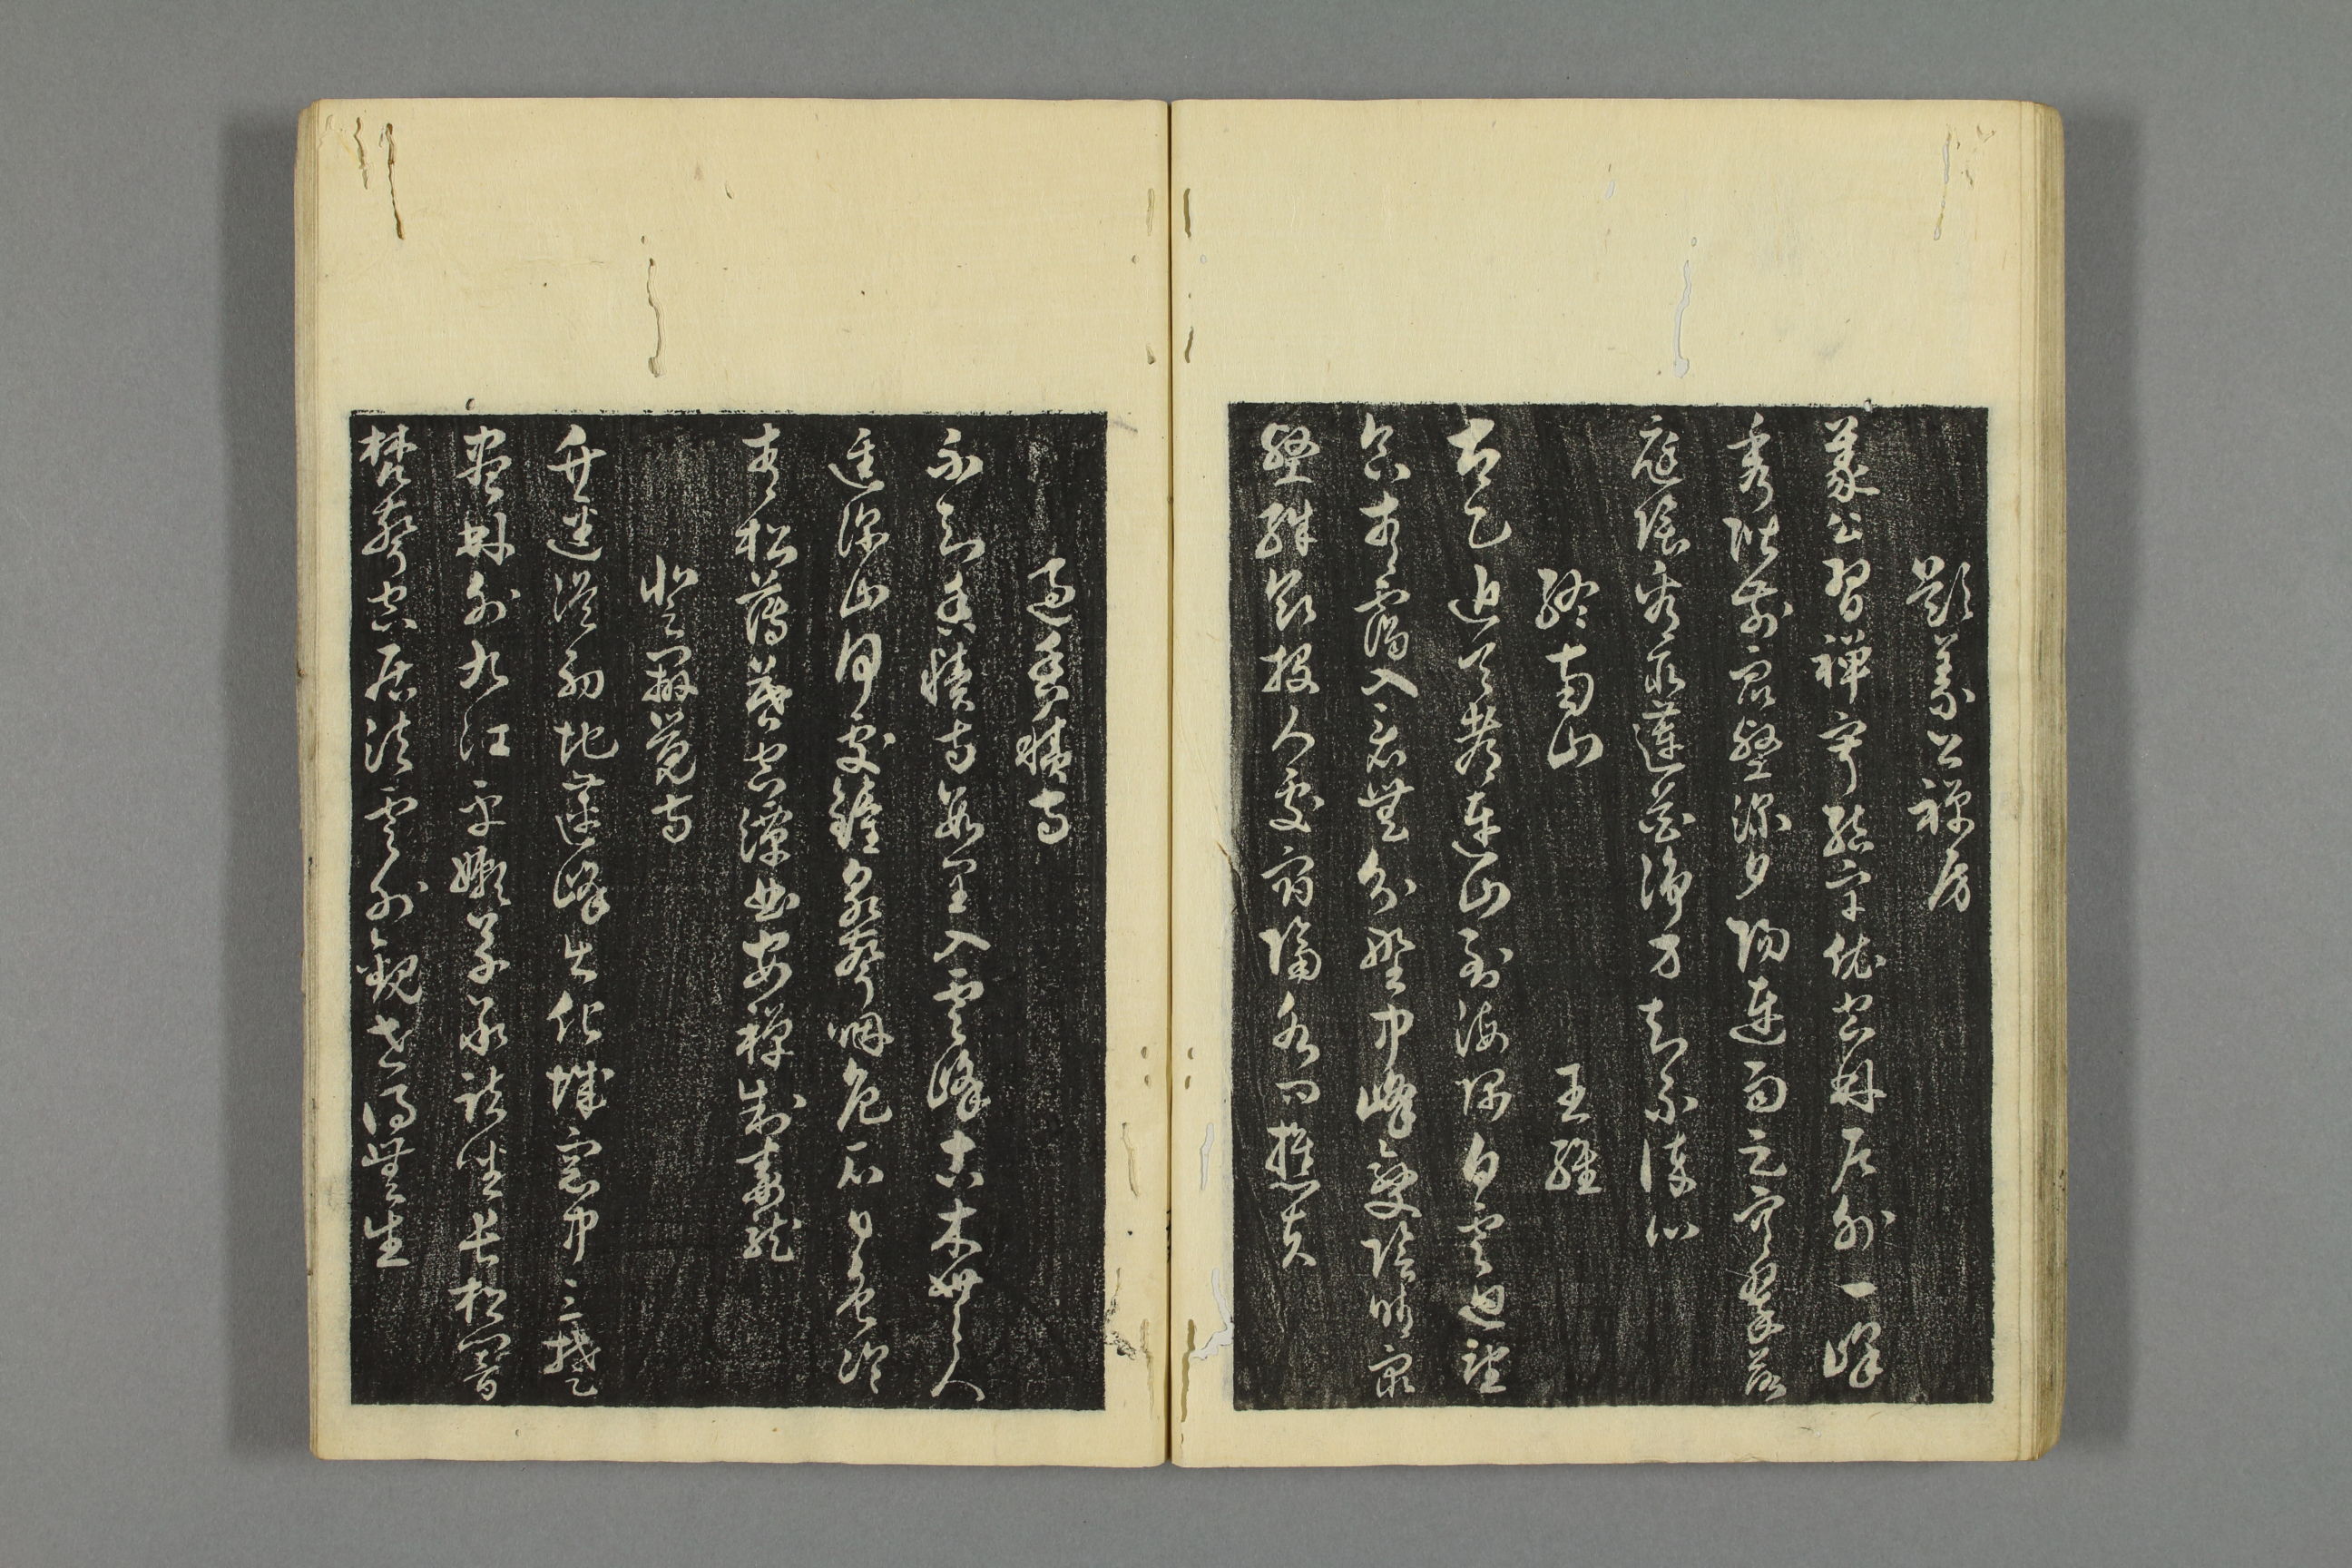 題義公禪房
義公習禪寂結宇依空林戸外一峰
秀階前衆壑深夕陽連雨足空翠落
庭陰看取蓮花浄方知不染心
終南山 王維
太乙近天都連山到海隅白雲迴望
合青靄入看無分野中峰變陰晴衆
壑殊欲投人處宿隔水問樵夫
過香積寺
不知香積寺數里入雲峰古木無人
逕深山何處鐘泉聲咽危石日色冷
青松薄暮空潭曲安禪制毒龍
登辨覺寺
竹逕從初地蓮峰出化城窓中三楚
盡林外九江平嫩草承趺坐長松響
梵聲空居法雲外觀世得無生